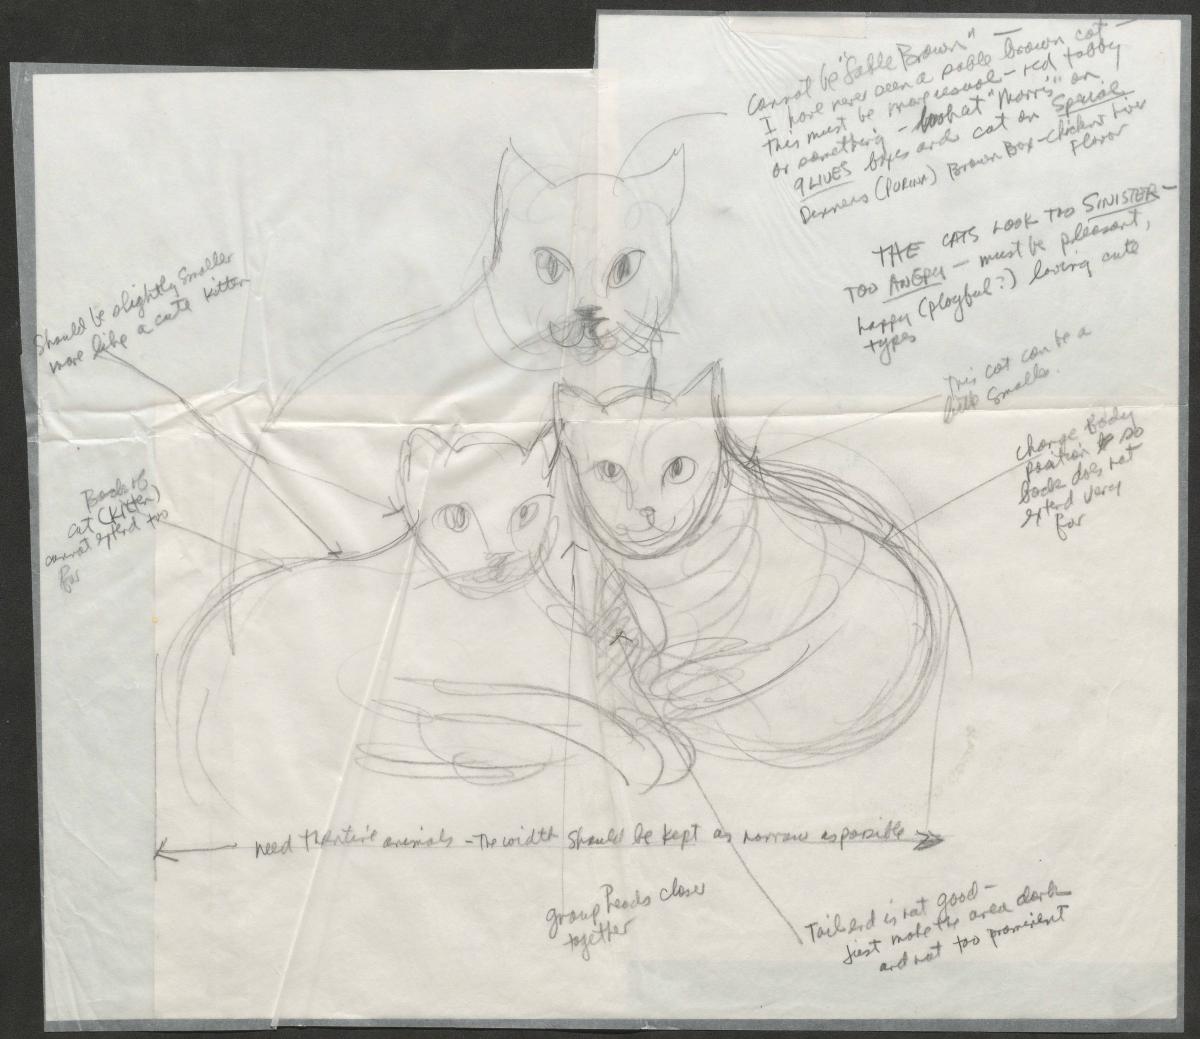 Cannot be "Sable Brown" —
I have never seen a sable brown cat —
This must be more usual — red tabby
or something — look at "Morris" on
9 LIVES boxes and cat on Special
Dinners (PURINA) Brown Box — Chicken Liver
Flavor
THE CATS LOOK TOO SINISTER —
TOO ANGRY — must be pleasant,
happy (playful?) loving cute
types
This cat can be a
little smaller.
change body
position so
back does not
extend very
far
Should be slightly smaller
more like a cute kitten
Back of
cat (kitten)
cannot extend too
far
need entire animals — The width should be kept as narrow as possible
group heads closer
together
Tail end is not good —
just make the area dark
and not too prominent